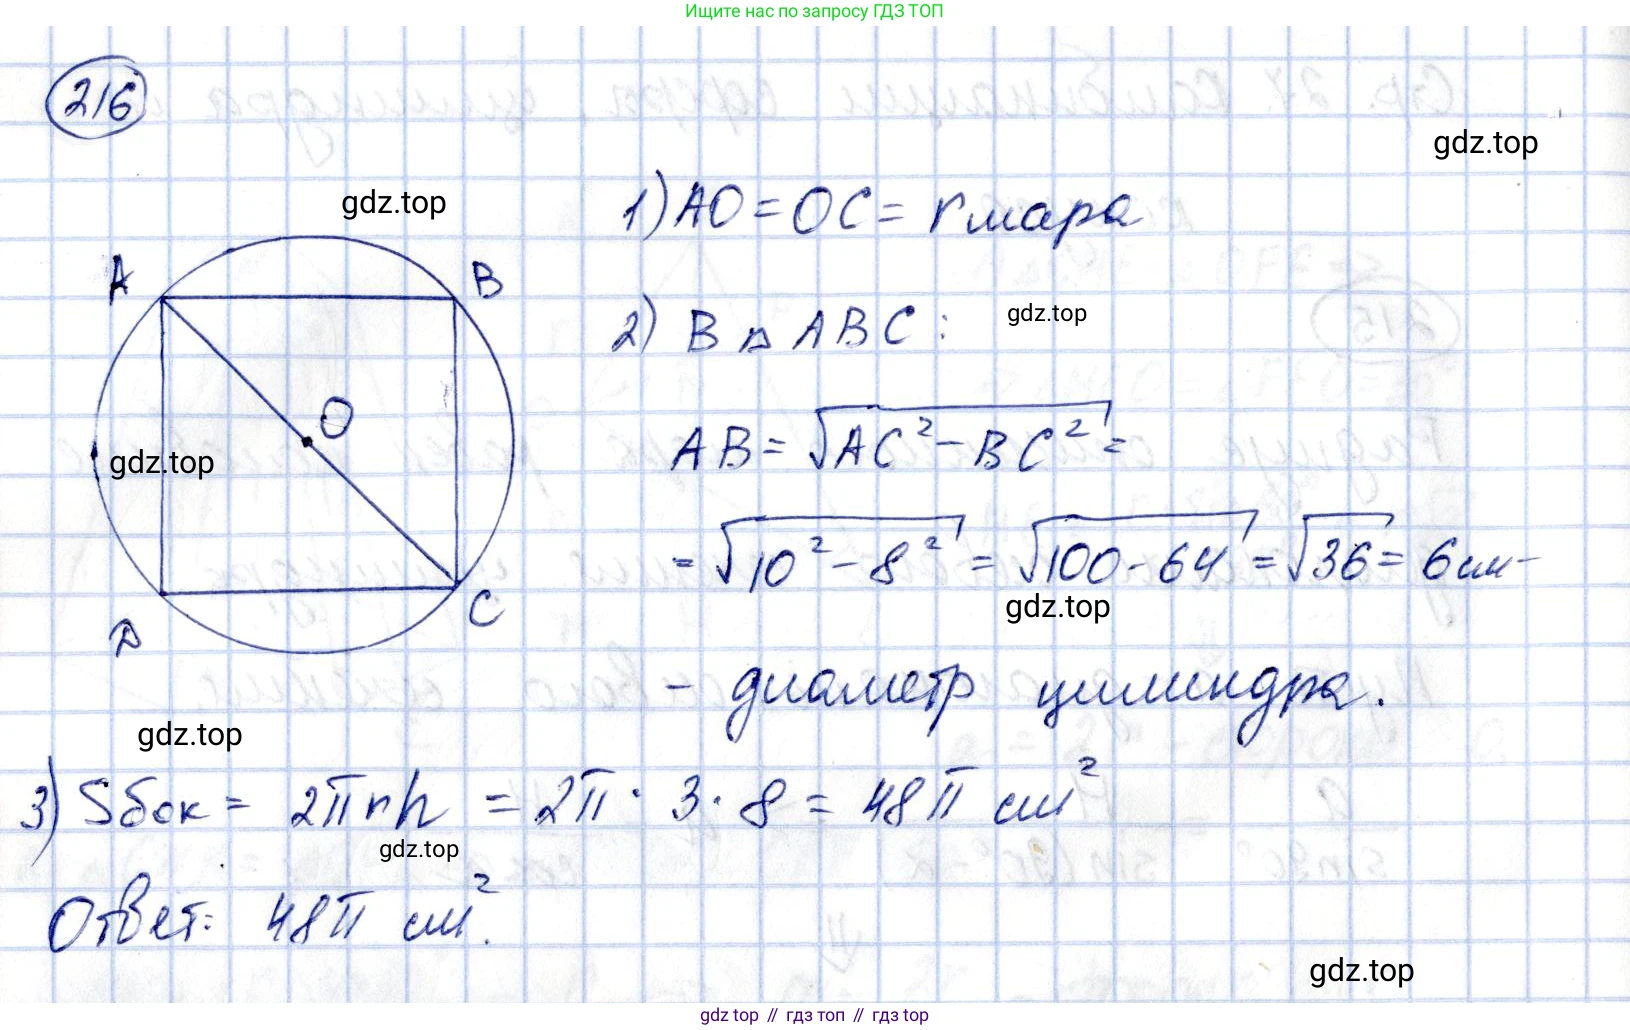 Ищите нас по запросу ГДЗ ТОП
216
gdz.top
gdz.top
1) AO = OC = r шара
A
B
2) В △ ABC:
gdz.top
O
AB = √AC² - BC² =
gdz.top
= √10² - 8² = √100 - 64 = √36 = 6 см -
gdz.top
D
C
- диаметр цилиндра.
gdz.top
3) Sбок = 2πrh = 2π · 3 · 8 = 48π см²
gdz.top
Ответ: 48π см².
gdz.top
gdz top // гдз топ // gdz top